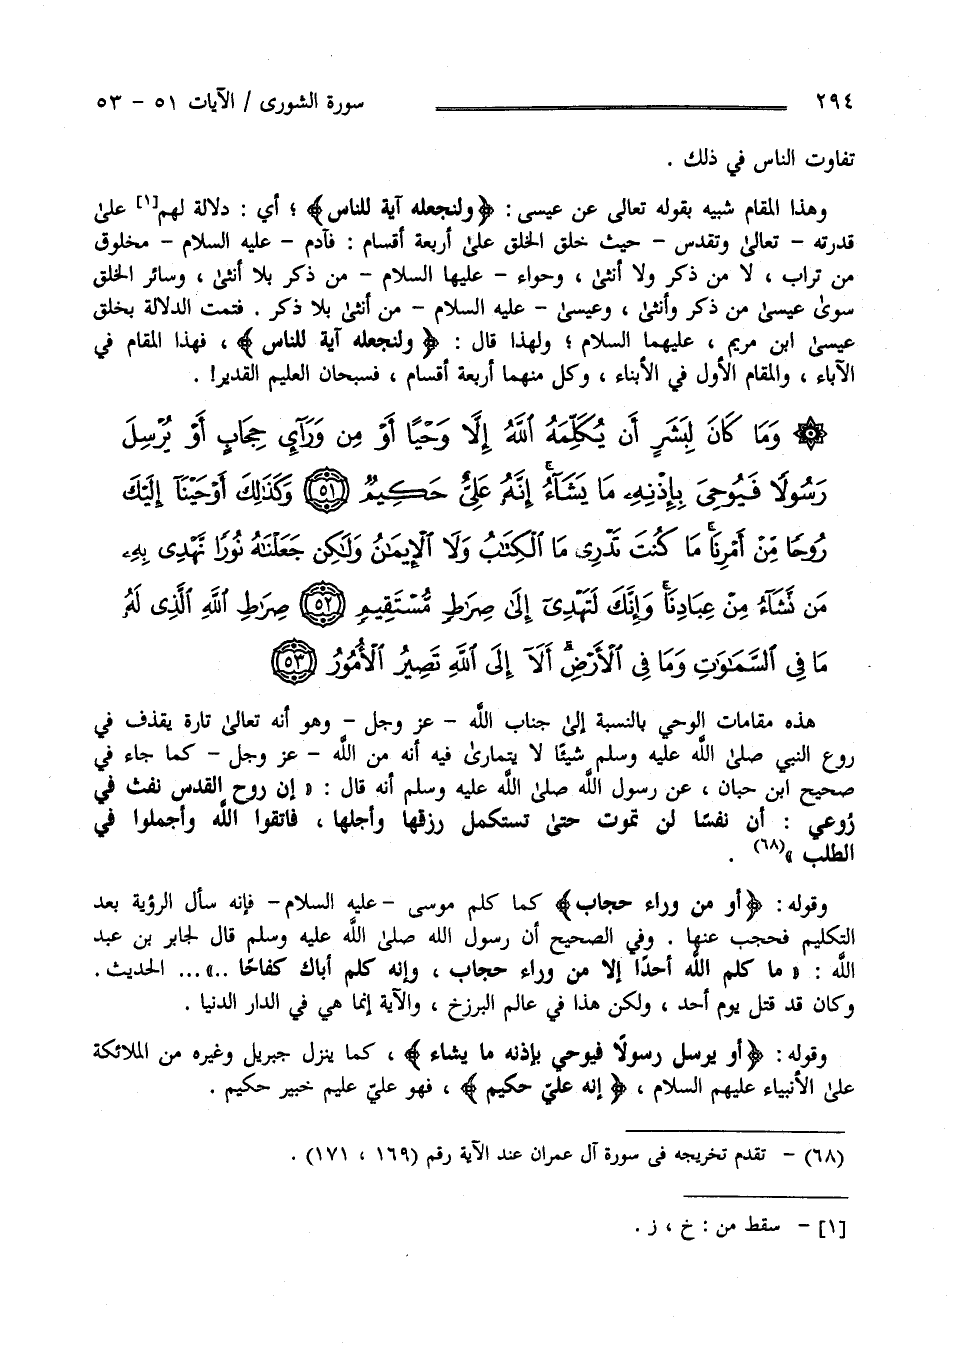 ٢٩٤ سورة الشورى / الآيات ٥١ - ٥٣
تفاوت الناس في ذلك .
وهذا المقام شبيه بقوله تعالى عن عيسى : ﴿ولنجعله آية للناس﴾ ؛ أي : دلالة لهم[١] علىٰ
قدرته - تعالىٰ وتقدس - حيث خلق الخلق علىٰ أربعة أقسام : فآدم - عليه السلام - مخلوق
من تراب ، لا من ذكر ولا أنثىٰ ، وحواء - عليها السلام - من ذكر بلا أنثىٰ ، وسائر الخلق
سوىٰ عيسىٰ من ذكر وأنثىٰ ، وعيسىٰ - عليه السلام - من أنثىٰ بلا ذكر . فتمت الدلالة بخلق
عيسىٰ ابن مريم ، عليهما السلام ؛ ولهذا قال : ﴿ ولنجعله آية للناس ﴾ ، فهذا المقام في
الآباء ، والمقام الأول في الأبناء ، وكل منهما أربعة أقسام ، فسبحان العليم القدير! .
۞ وَمَا كَانَ لِبَشَرٍ أَن يُكَلِّمَهُ ٱللَّهُ إِلَّا وَحْيًا أَوْ مِن وَرَآيِٕ حِجَابٍ أَوْ يُرْسِلَ
رَسُولًا فَيُوحِىَ بِإِذْنِهِۦ مَا يَشَآءُ ۚ إِنَّهُۥ عَلِىٌّ حَكِيمٌ ﴿٥١﴾ وَكَذَٰلِكَ أَوْحَيْنَآ إِلَيْكَ
رُوحًا مِّنْ أَمْرِنَا ۚ مَا كُنتَ تَدْرِى مَا ٱلْكِتَٰبُ وَلَا ٱلْإِيمَٰنُ وَلَٰكِن جَعَلْنَٰهُ نُورًا نَّهْدِى بِهِۦ
مَن نَّشَآءُ مِنْ عِبَادِنَا ۚ وَإِنَّكَ لَتَهْدِىٓ إِلَىٰ صِرَٰطٍ مُّسْتَقِيمٍ ﴿٥٢﴾ صِرَٰطِ ٱللَّهِ ٱلَّذِى لَهُۥ
مَا فِى ٱلسَّمَٰوَٰتِ وَمَا فِى ٱلْأَرْضِ ۗ أَلَآ إِلَى ٱللَّهِ تَصِيرُ ٱلْأُمُورُ ﴿٥٣﴾
هذه مقامات الوحي بالنسبة إلىٰ جناب اللَّه - عز وجل - وهو أنه تعالىٰ تارة يقذف في
روع النبي صلىٰ اللَّه عليه وسلم شيئًا لا يتمارىٰ فيه أنه من اللَّه - عز وجل - كما جاء في
صحيح ابن حبان ، عن رسول اللَّه صلىٰ اللَّه عليه وسلم أنه قال : « إن روح القدس نفث في
رُوعي : أن نفسًا لن تموت حتىٰ تستكمل رزقها وأجلها ، فاتقوا اللَّه وأجملوا في
الطلب »(٦٨) .
وقوله : ﴿أو من وراء حجاب﴾ كما كلم موسى -عليه السلام- فإنه سأل الرؤية بعد
التكليم فحجب عنها . وفي الصحيح أن رسول الله صلىٰ اللَّه عليه وسلم قال لجابر بن عبد
اللَّه : « ما كلم اللَّه أحدًا إلا من وراء حجاب ، وإنه كلم أباك كفاحًا ..»... الحديث .
وكان قد قتل يوم أحد ، ولكن هذا في عالم البرزخ ، والآية إنما هي في الدار الدنيا .
وقوله : ﴿أو يرسل رسولًا فيوحي بإذنه ما يشاء ﴾ ، كما ينزل جبريل وغيره من الملائكة
علىٰ الأنبياء عليهم السلام ، ﴿ إنه عليّ حكيم ﴾ ، فهو عليّ عليم خبير حكيم .
(٦٨) - تقدم تخريجه فى سورة آل عمران عند الآية رقم (١٦٩ ، ١٧١) .
[١] - سقط من : خ ، ز .